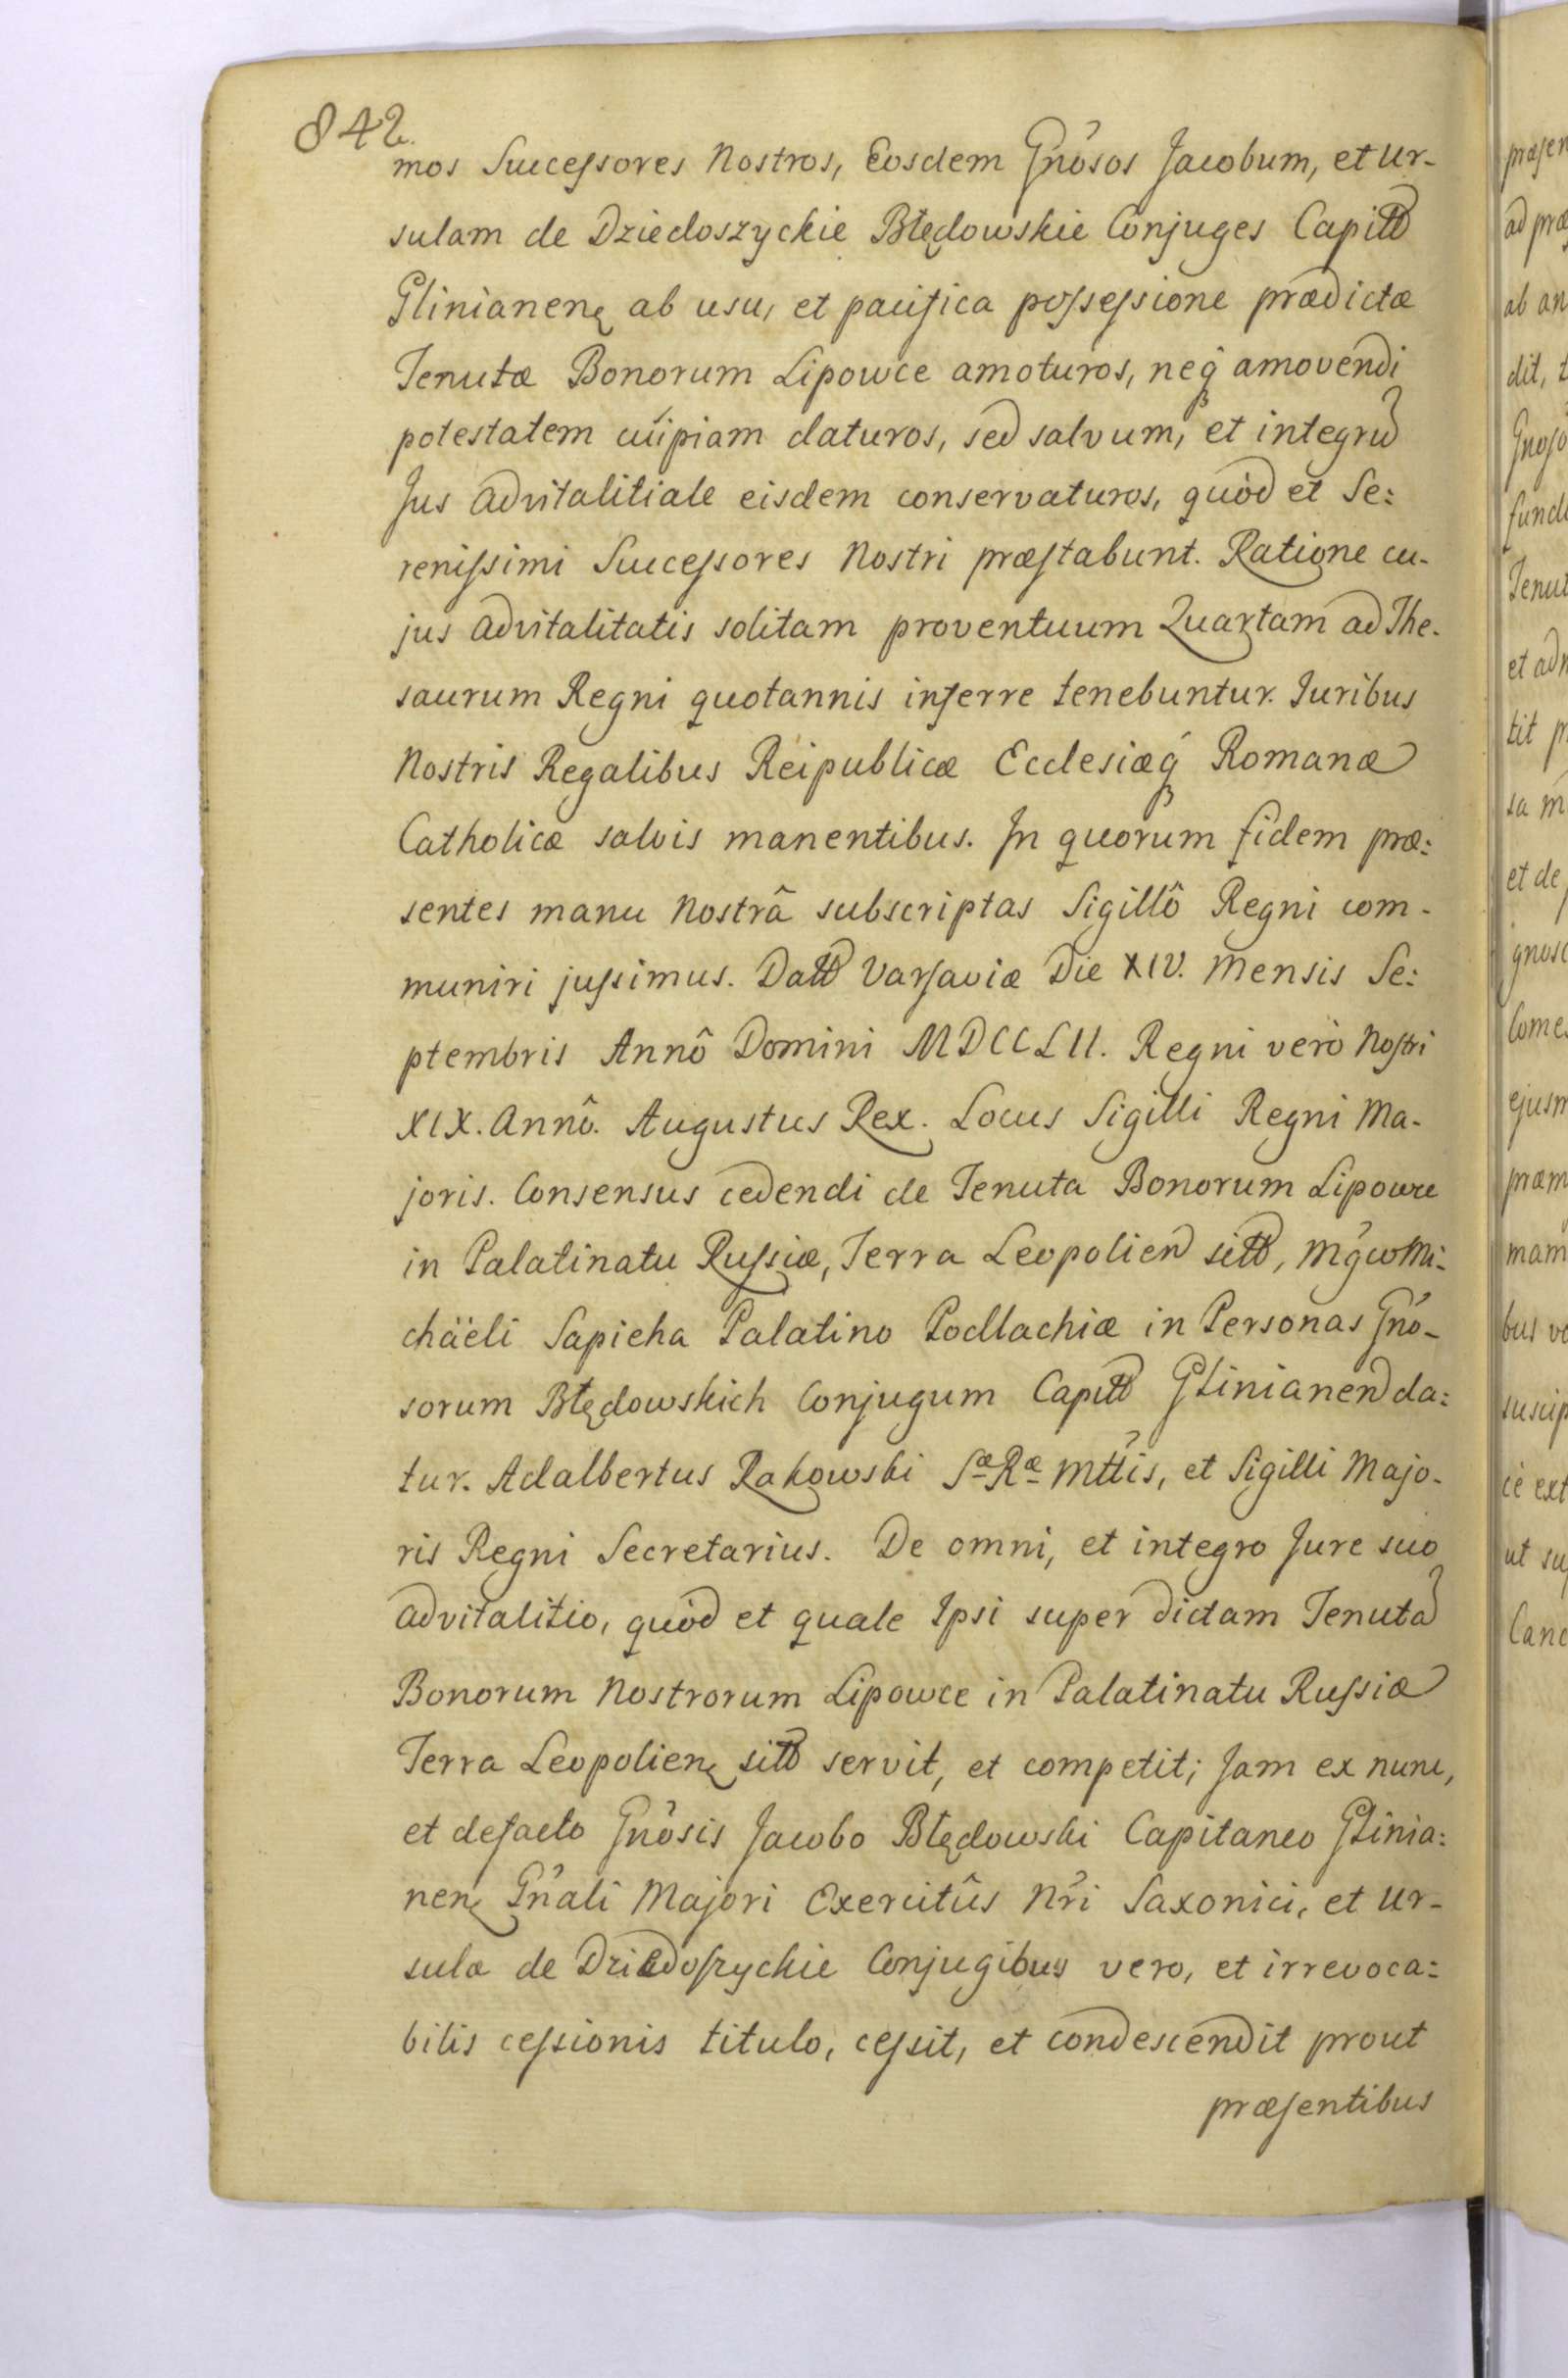 842.
mos Successores Nostros, Eosdem Gnosos Jacobum, et Ur-
sulam de Dziedoszyckie Błędowskie Conjuges Capitt
Glinianen ab usu, et pacifica possessione prædictæ
Tenutæ Bonorum Lipowce amoturos, neq amovendi
potestatem cuipiam daturos, sed salvum, et integru
Jus advitalitiale eisdem conservaturos, quòd et Se:
renissimi Successores Nostri præstabunt. Ratione cu-
jus advitalitatis solitam proventuum Quartam ad The-
saurum Regni quotannis inferre tenebuntur. Juribus
Nostris Regalibus Reipublicæ Ecclesiæq Romanæ
Catholicæ salvis manentibus. In quorum fidem præ:
sentes manu Nostrâ subscriptas Sigillô Regni com-
muniri jussimus. Datt Varsaviæ Die XIV. Mensis Se:
ptembris Annô Domini MDCCLII. Regni verò Nostri
XIX. Annô. Augustus Rex. Locus Sigilli Regni Ma-
joris. Consensus cedendi de Tenuta Bonorum Lipowce
in Palatinatu Russiæ, Terra Leopolien sitt, Mgco Mi:
chäeli Sapieha Palatino Podlachiæ in Personas Gno-
sorum Błędowskich Conjugum Capitt Glinianen da:
tur. Adalbertus Rakowski Sæ Ræ Mttis, et Sigilli Majo-
ris Regni Secretarius. De omni, et integro Jure suo
advitalitio, quòd et quale Ipsi super dictam Tenuta
Bonorum Nostrorum Lipowce in Palatinatu Russiæ
Terra Leopolien sitt servit, et competit; Jam ex nunc,
et defacto Gnosis Jacobo Błędowski Capitaneo Glinia:
nen Gnali Majori Exercitûs Nri Saxonici, et Ur-
sulæ de Dziedoszyckie Conjugibus vero, et irrevoca:
bilis cessionis titulo, cessit, et condescendit prout
præsentibus